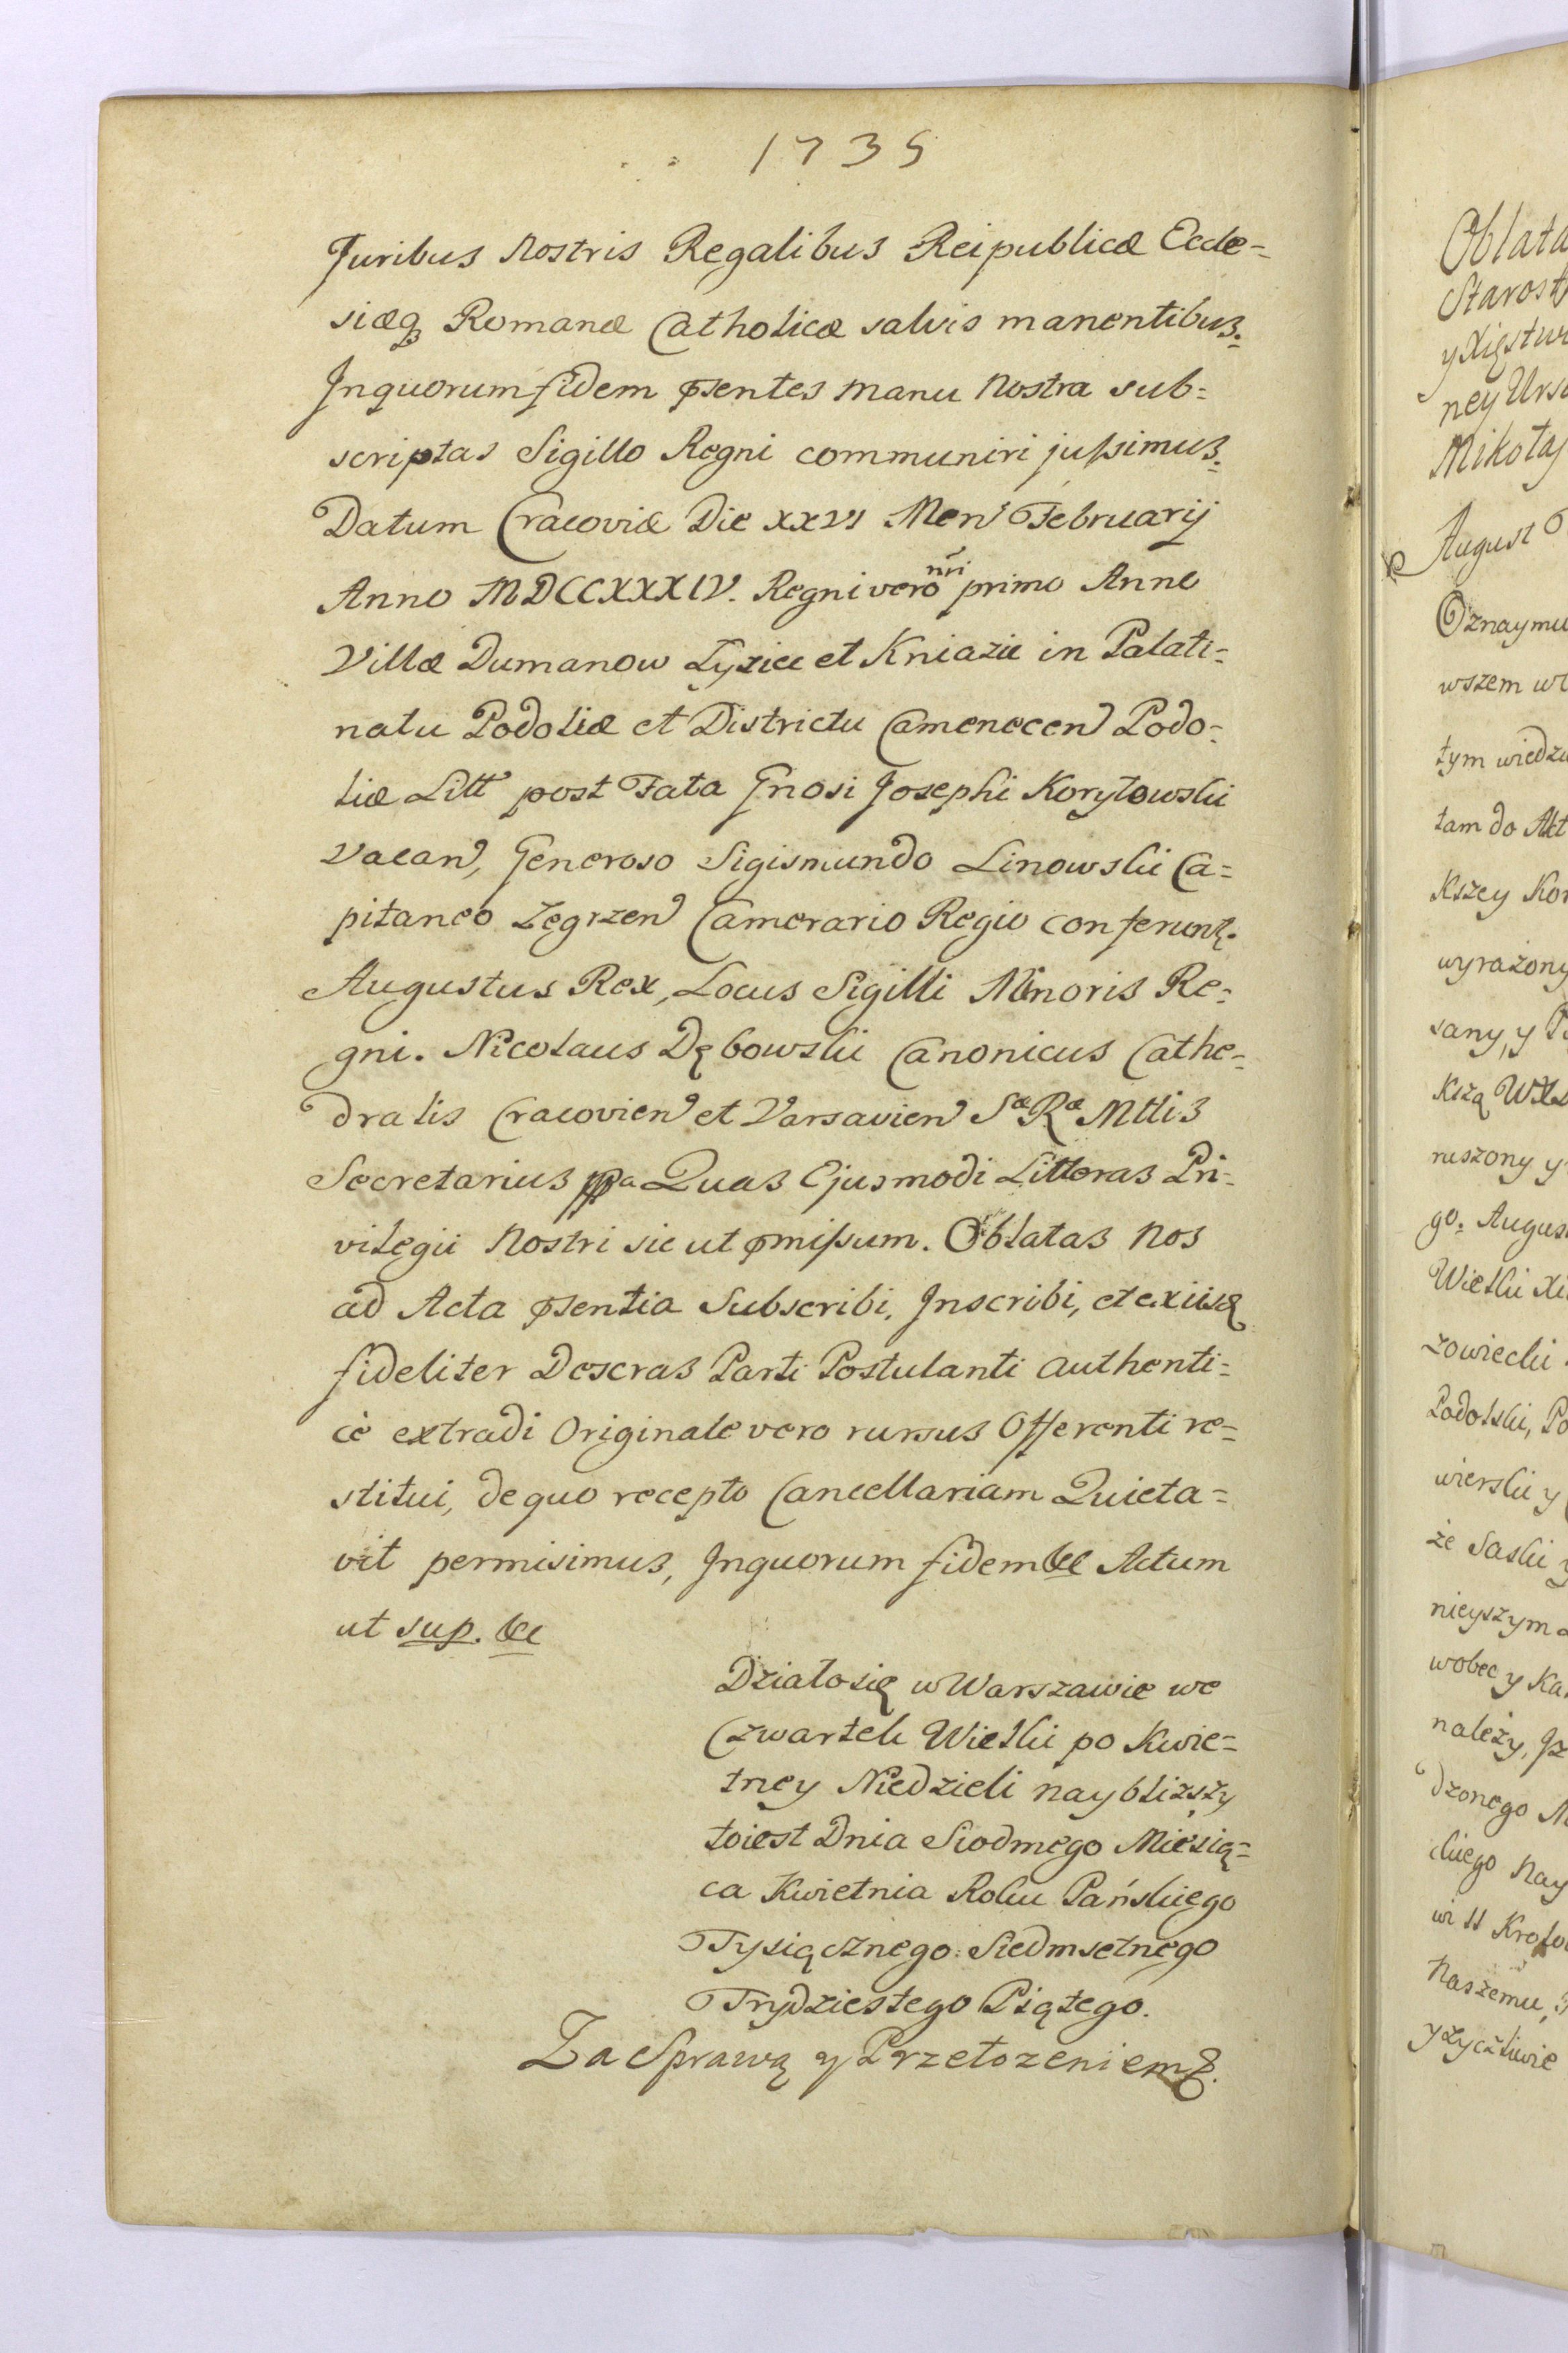 1735
Juribus Nostris Regalibus Reipublicæ Eccle=
siæq Romanæ Catholicæ salvis manentibus.
Inquorum fidem pſentes manu Nostra sub=
scriptas Sigillo Regni communiri jußimus.
Datum Cracoviæ Die XXVI Men Februarij
Anno MDCCXXXIV. Regni vero nri primo Anno
Villæ Dumanow Lysiec et Kniazie in Palati=
natu Podoliæ et Districtu Camenecen Podo=
liæ Litt post Fata Gnosi Josephi Korytowski
Vacan, Generoso Sigismundo Linowski Ca=
pitaneo Zegrzen Camerario Regio conferunt.
Augustus Rex, Locus Sigilli Minoris Re=
gni. Nicolaus Dębowski Canonicus Cathe=
dralis Cracovien et Varsavien Sæ Ræ Mttis
Secretarius ppa Quas Ejusmodi Litteras Pri=
vilegii Nostri sic ut pmißum. Oblatas Nos
ad Acta pſentia Subscribi, Inscribi, et exiisq
fideliter Descras Parti Postulanti authenti=
cè extradi Originale vero rursus Offerenti re=
stitui, de quo recepto Cancellariam Quieta=
vit permisimus, Inquorum fidem &c Actum
ut sup. &c
Działo się w Warszawie we
Czwartek Wielki po Kwie=
tney Niedzieli naybliższy
toiest Dnia Siodmego Miesią=
ca Kwietnia Roku Pańskiego
Tysiącznego Siedmsetnego
Trydziestego Piątego.
Za Sprawą y Przełozeniem &.
Oblata
Starost
y Xięstw
ney Urs
Mikołaj
August
Oznaymu
wszem w
tym wiedz
tam do Akt
Kszey Kor
wyrażony
sany, y
Kszą
ruszony y
go. Augus
Wielki Xi
zowiecki
Podolski, Po
wierski y
że Saski y
nieyszym
wobec y Ka
należy, Iz
dzonego
ckiego Nay
Naszemu,
y życzliwie